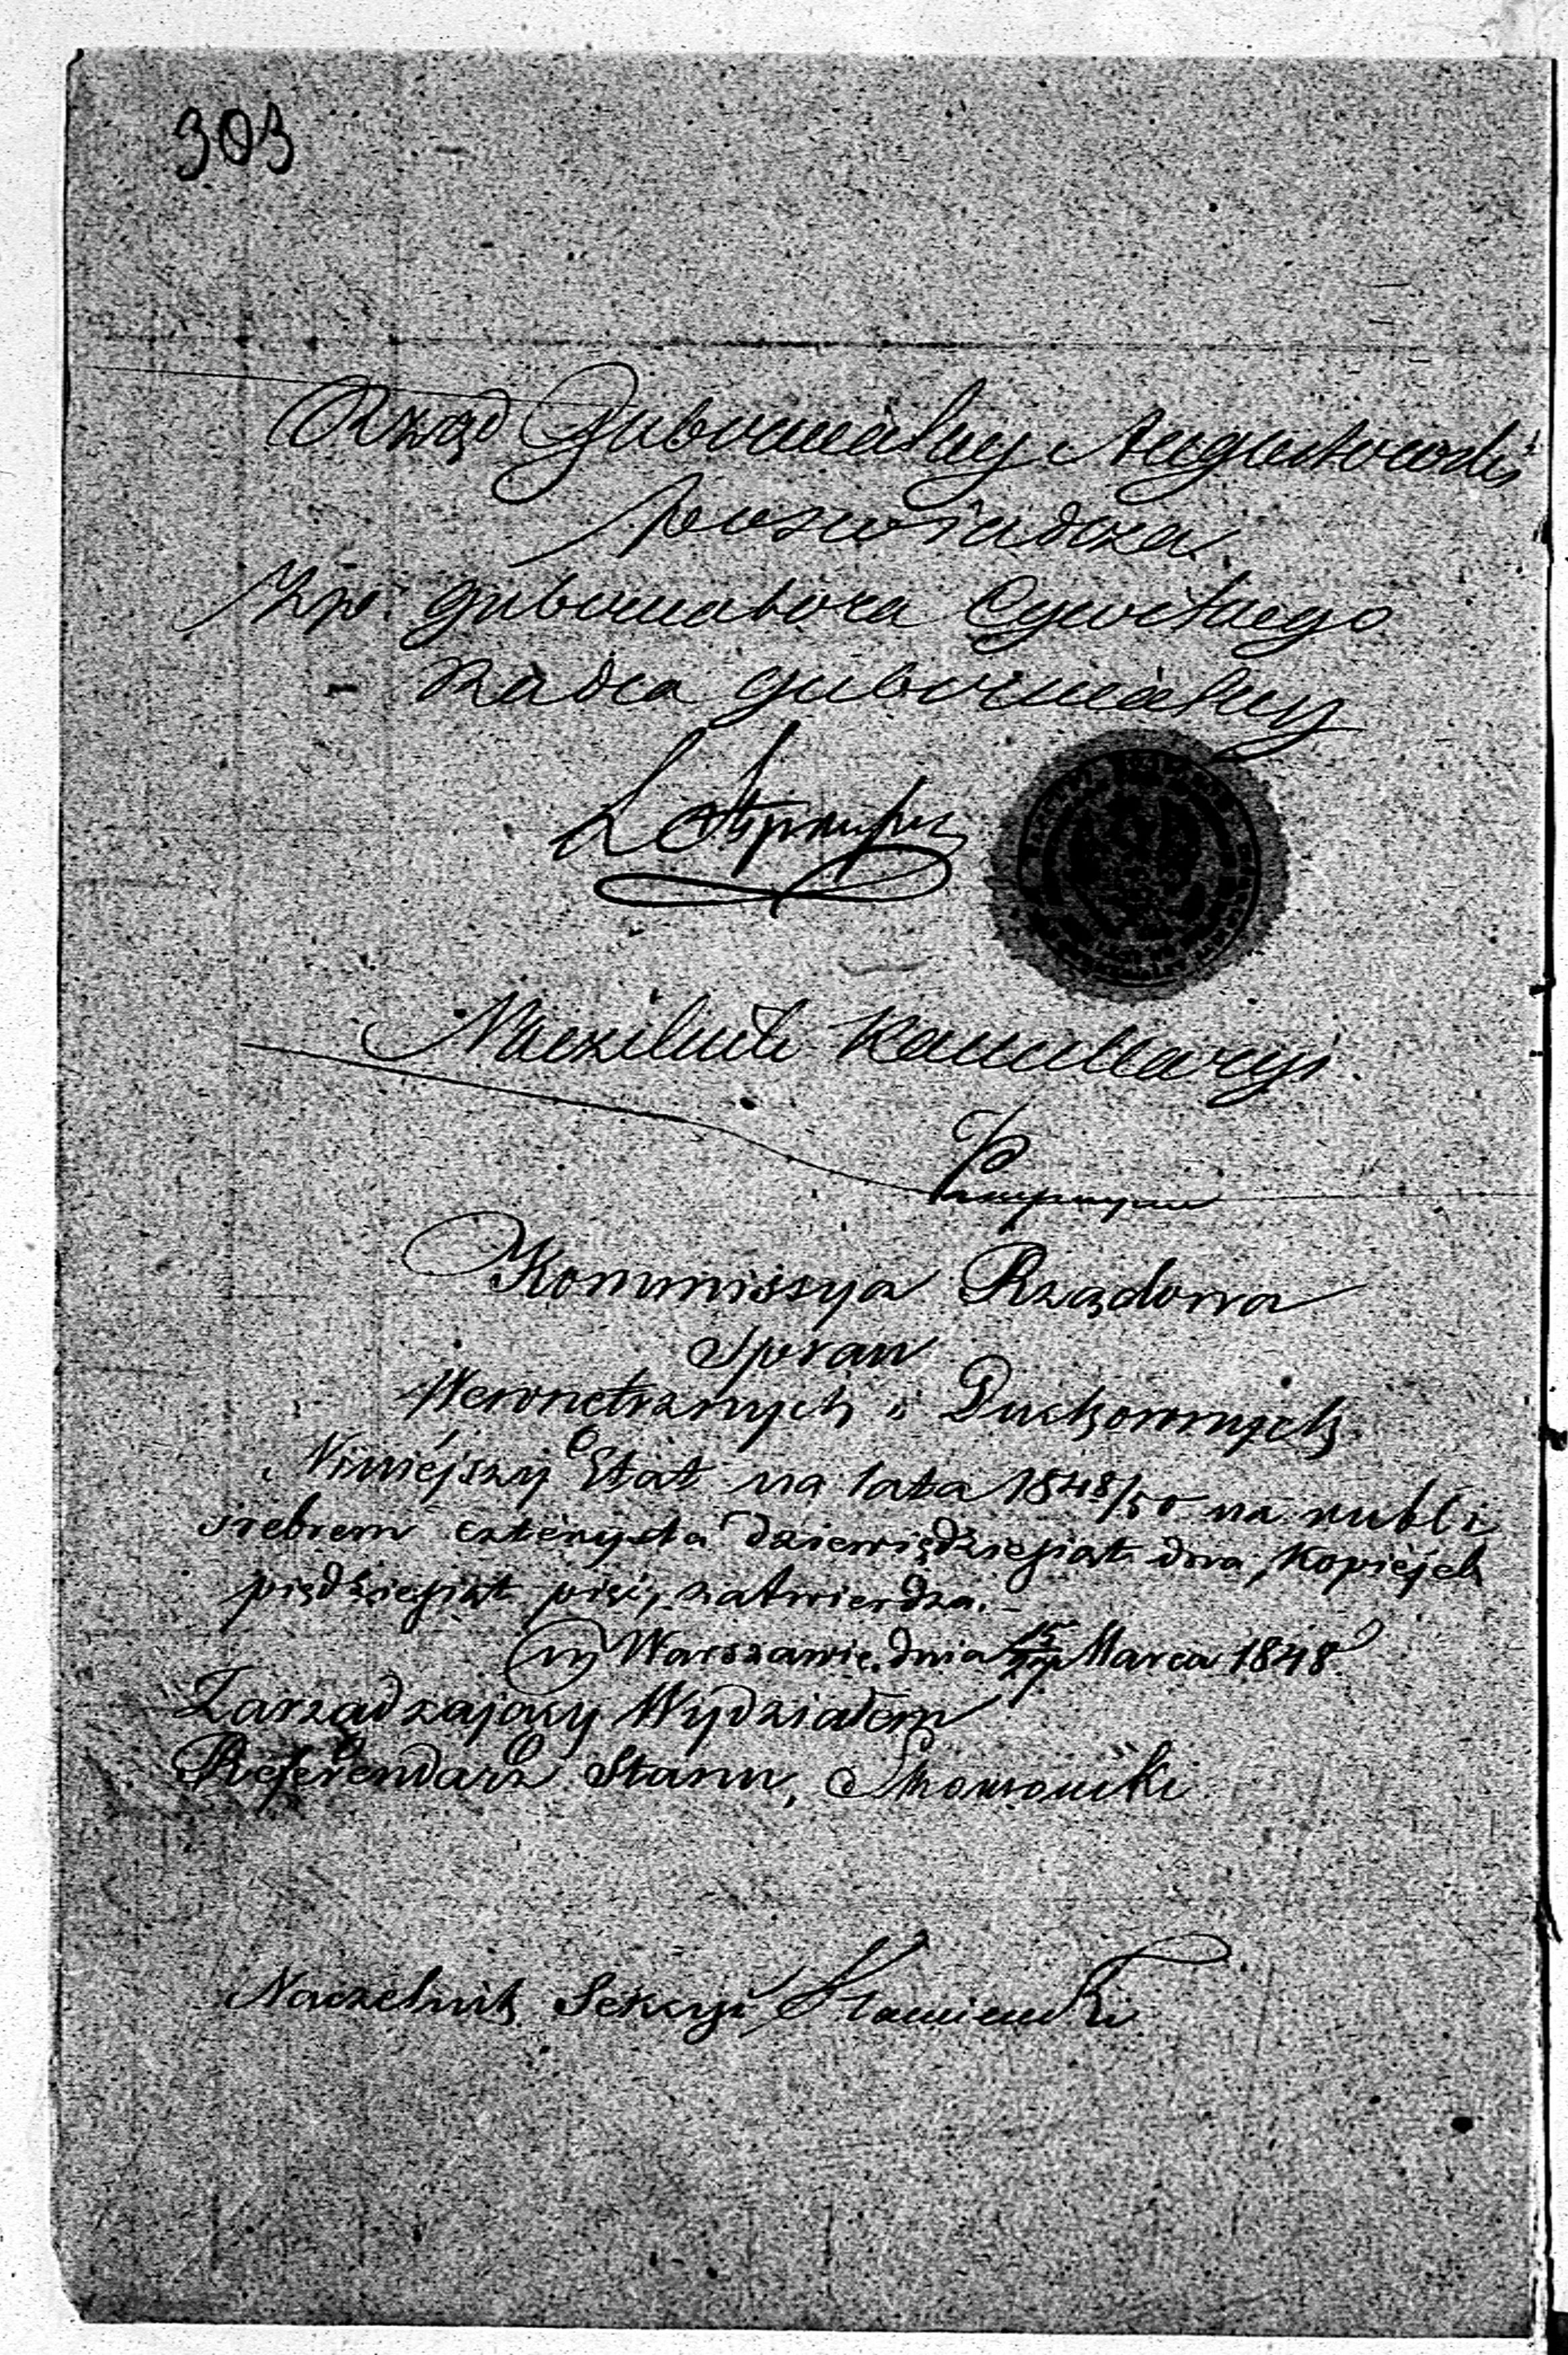 303
Rząd Gubernialny Augustowski
poswiadcza.
Gubernatora Cywilnego
Radca Gubernialny
Naczelnik Kancellaryi
Kommissya Rządowa
Spraw
Wewnetrznych i Duchownych
Niniéjszy Etat na lata 1848/50 na rubli
srebrem czterysta dziewiędziesiąt dwa, kopiéjek
piędziesiąt pięć, zatwierdza.
w Warszawie dnia 15/27 Marca 1848
Zarządzający Wydziałem
Referendarz Stanu,
Naczelnik Sekcyi